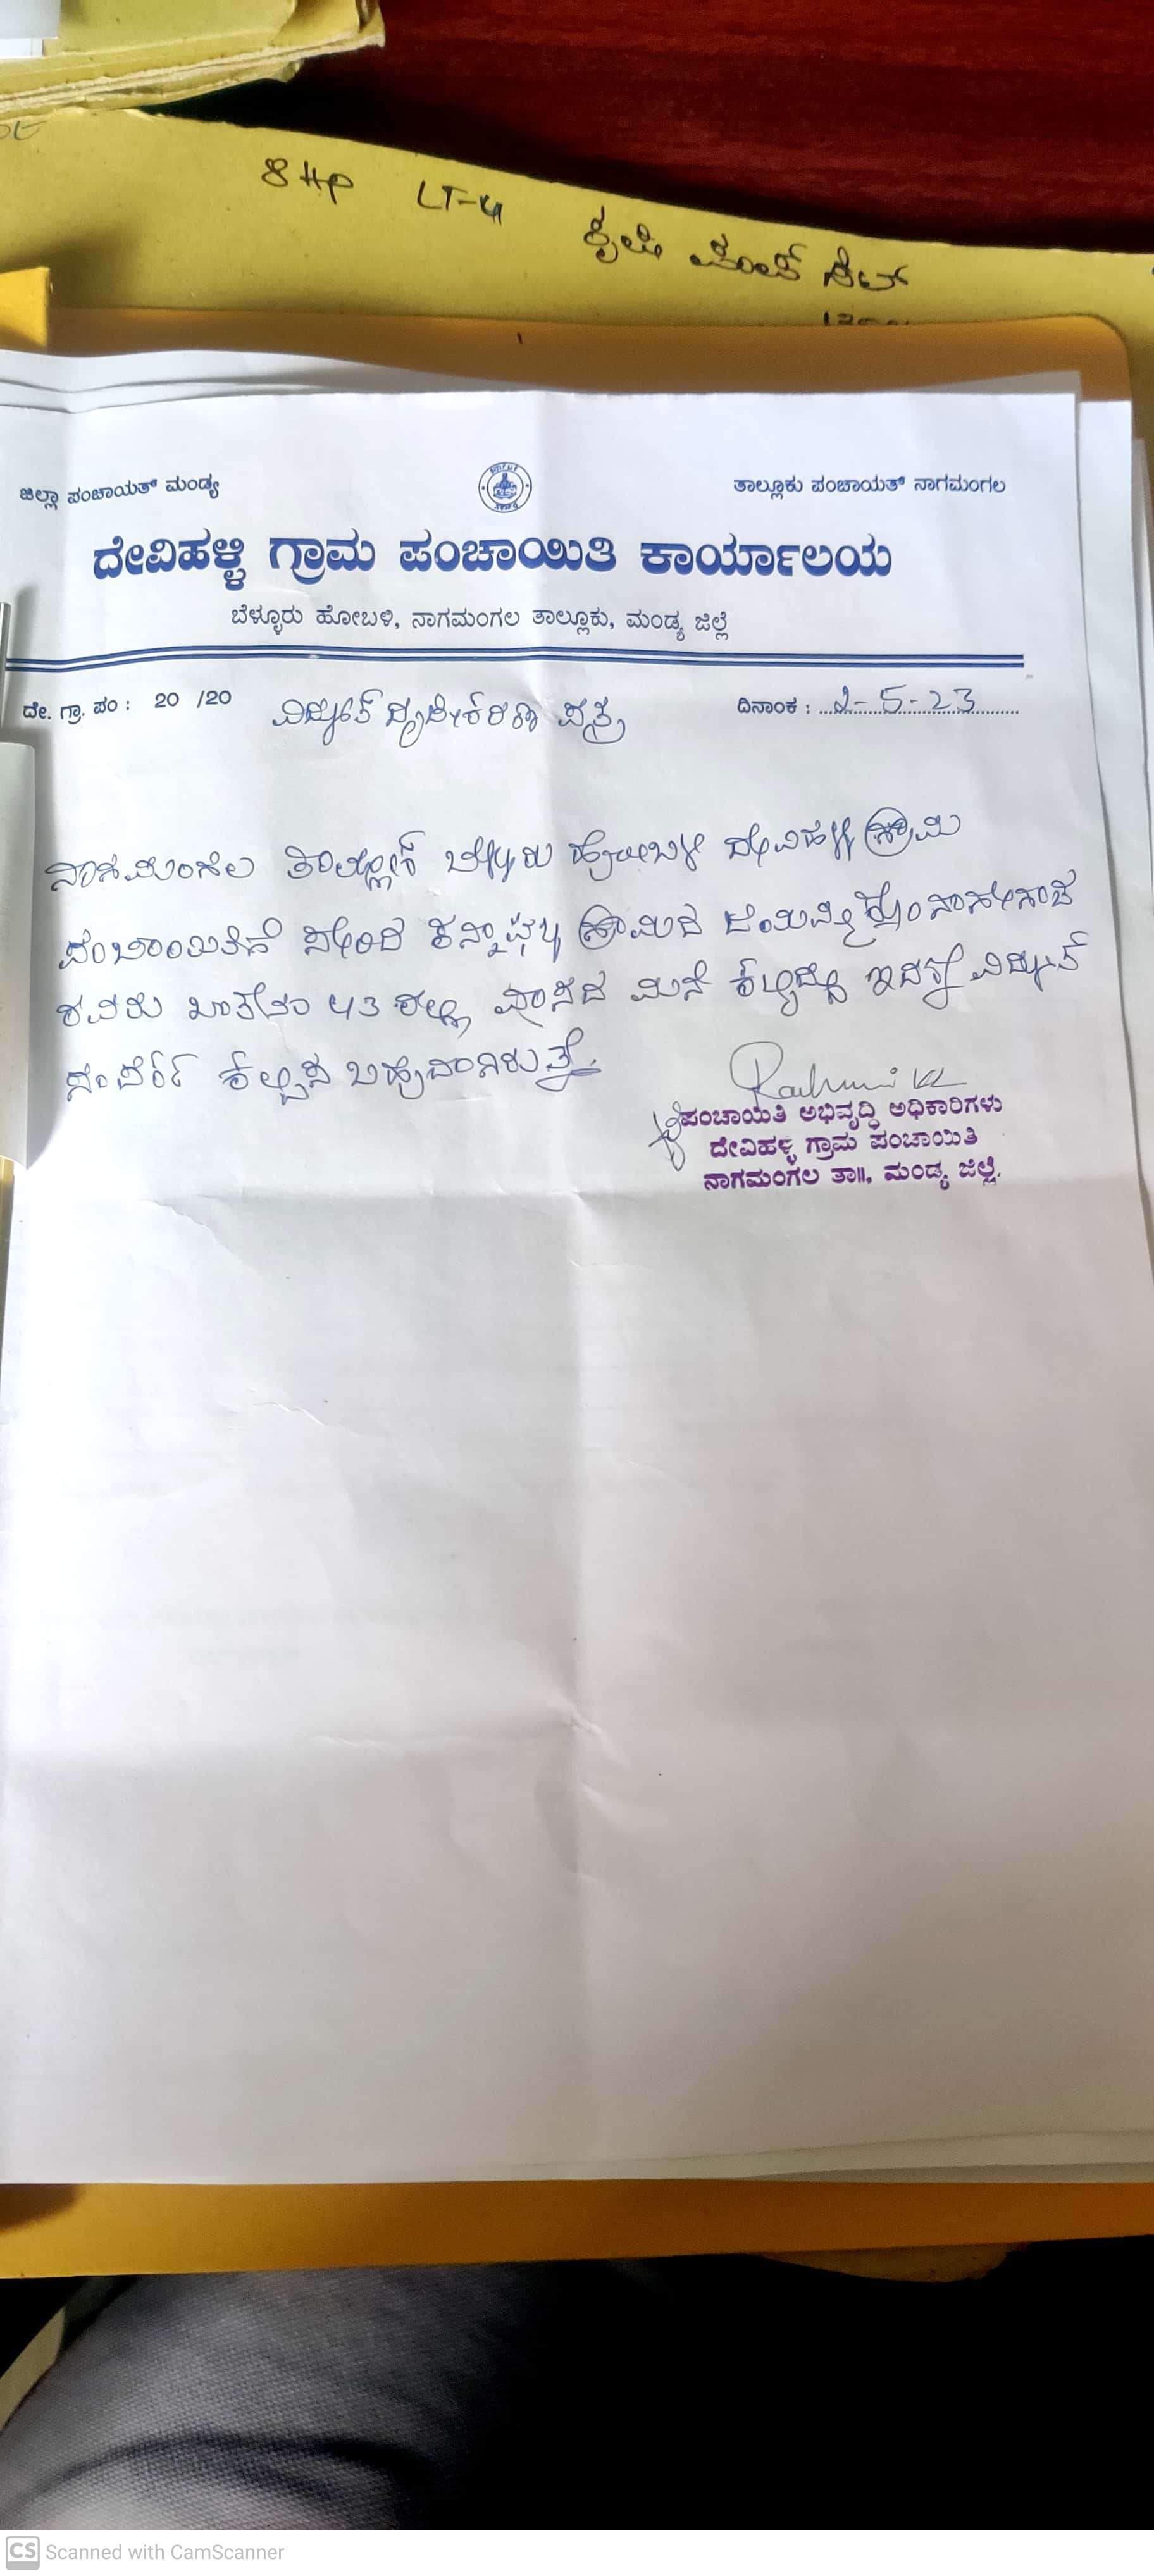 8 HP LT-4
ಜಿಲ್ಲಾ ಪಂಚಾಯತ್ ಮಂಡ್ಯ
ತಾಲ್ಲೂಕು ಪಂಚಾಯತ್ ನಾಗಮಂಗಲ
ದೇವಿಹಳ್ಳಿ ಗ್ರಾಮ ಪಂಚಾಯಿತಿ ಕಾರ್ಯಾಲಯ
ಬೆಳ್ಳೂರು ಹೋಬಳಿ, ನಾಗಮಂಗಲ ತಾಲ್ಲೂಕು, ಮಂಡ್ಯ ಜಿಲ್ಲೆ
ದೇ. ಗ್ರಾ. ಪಂ : 20 /20
ವಿದ್ಯುತ್ ದೃಢೀಕರಣ ಪತ್ರ
ದಿನಾಂಕ : 2-5-23
ನಾಗಮಂಗಲ ತಾಲ್ಲೂಕ್ ಬೆಳ್ಳೂರು ಹೋಬಳಿ ದೇವಿಹಳ್ಳಿ ಗ್ರಾಮ
ಪಂಚಾಯಿತಿಗೆ ಸೇರಿದ ಗ್ರಾಮದ ಜಯಮ್ಮ ಕೋಂ
ರವರು ಖಾತೆ ನಂ 43 ರಲ್ಲಿ ವಾಸದ ಮನೆ ಇದಕ್ಕೆ ವಿದ್ಯುತ್
ಸಂಪರ್ಕ ಕಲ್ಪಿಸ ಬಹುದಾಗಿರುತ್ತೆ.
ಪಂಚಾಯಿತಿ ಅಭಿವೃದ್ಧಿ ಅಧಿಕಾರಿಗಳು
ದೇವಿಹಳ್ಳಿ ಗ್ರಾಮ ಪಂಚಾಯಿತಿ
ನಾಗಮಂಗಲ ತಾ||, ಮಂಡ್ಯ ಜಿಲ್ಲೆ.
CS Scanned with CamScanner